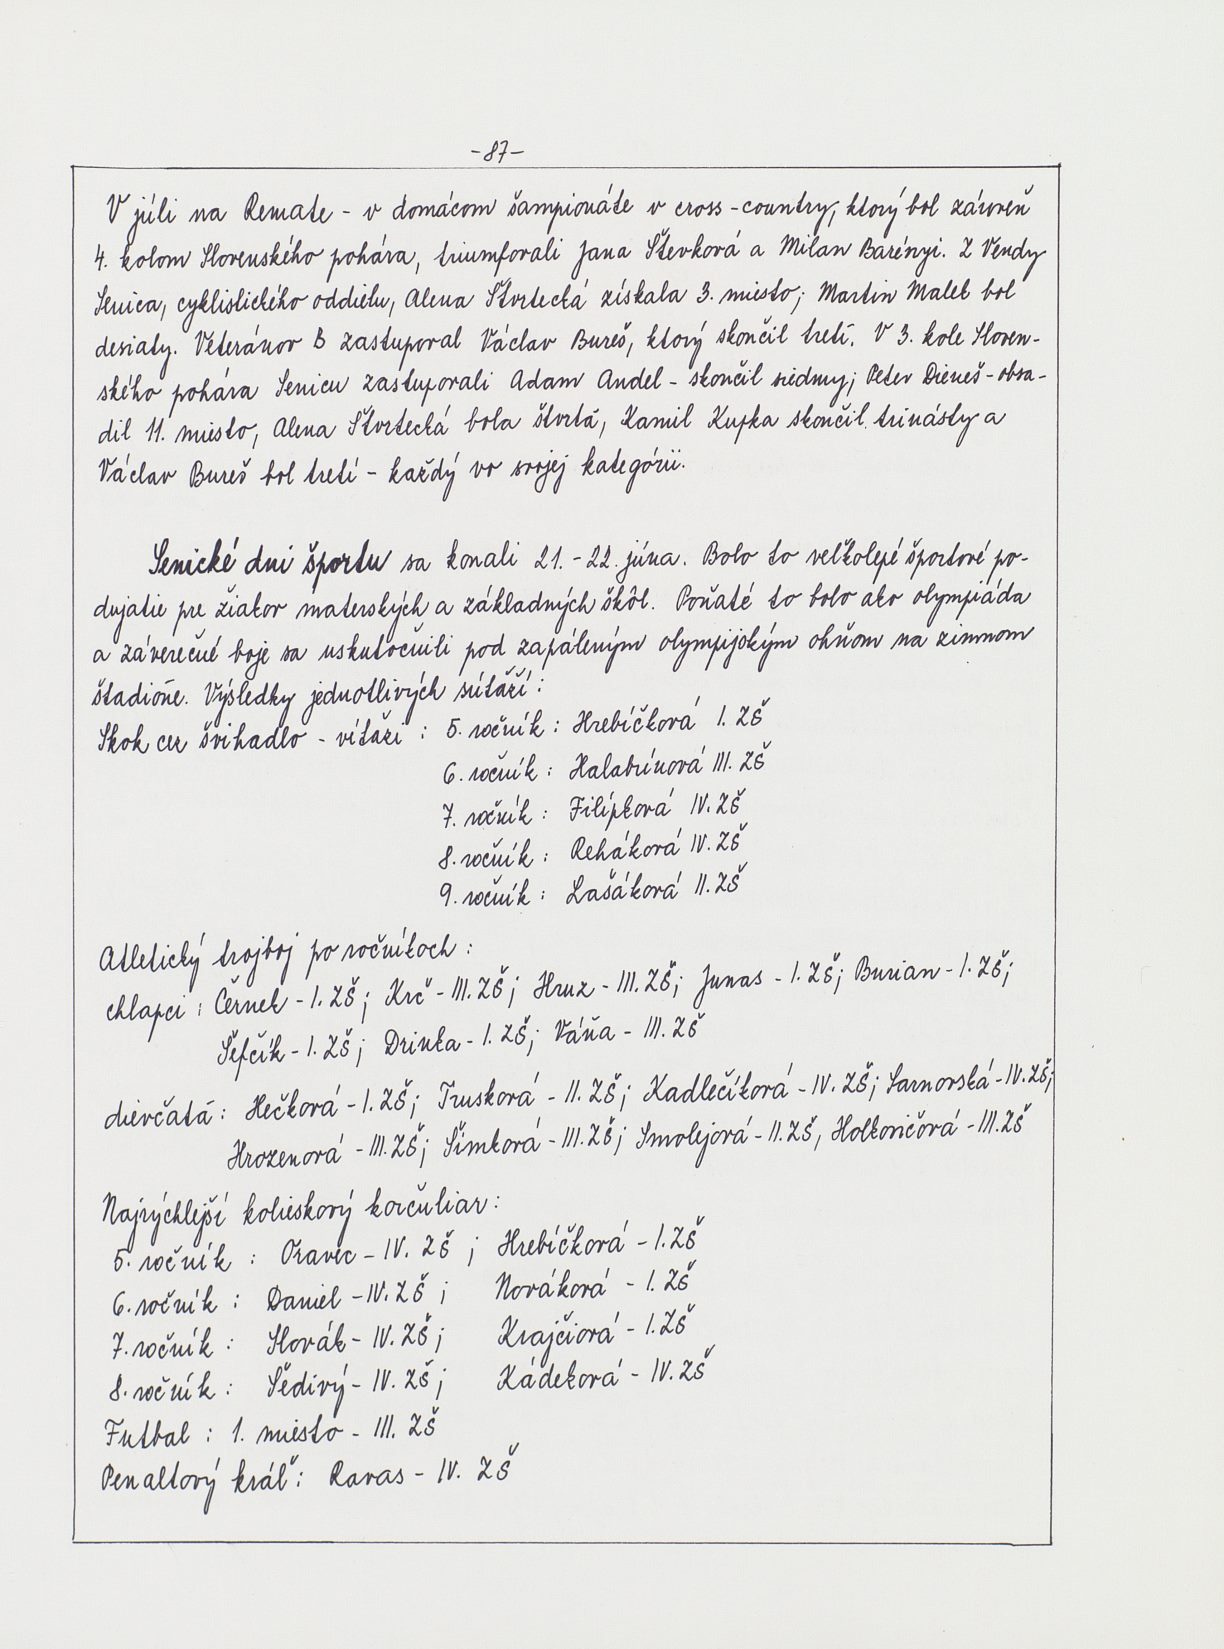 -87-
V júli na Remate - v domácom šampionáte v cross-country, ktorý bol zároveň
4. kolom Slovenského pohára, triumfovali Jana Števková a Milan Barényi. Z Vendy
Senica, cyklistického oddielu, Alena Štvrtecká získala 3. miesto; Martin Malek bol
desiaty. Veteránov B zastupoval Václav Bureš, ktorý skončil tretí. V 3. kole Sloven-
ského pohára Senicu zastupovali Adam Andel - skončil siedmy; Peter Dieneš - obsa-
dil 11. miesto, Alena Štvrtecká bola štvrtá, Kamil Kupka skončil trinásty a
Václav Bureš bol tretí - každý vo svojej kategórii.
Senické dni športu sa konali 21. - 22. júna. Bolo to veľkolepé športové po-
dujatie pre žiakov materských a základných škôl. Poňaté to bolo ako olympiáda
a záverečné boje sa uskutočnili pod zapáleným olympijským ohňom na zimnom
štadióne. Výsledky jednotlivých súťaží:
Skok cez švihadlo - víťazi : 5. ročník : Hrebíčková I. ZŠ
6. ročník : Halabrínová III. ZŠ
7. ročník : Filípková IV. ZŠ
8. ročník : Reháková IV. ZŠ
9. ročník : Lašáková II. ZŠ
Atletický trojboj po ročníkoch :
chlapci : Černek - I. ZŠ; Krč - III. ZŠ; Hruz - III. ZŠ; Junas - I. ZŠ; Burian - I. ZŠ;
Šefčík - I. ZŠ; Drinka - I. ZŠ; Váňa - III. ZŠ
dievčatá : Hečková - I. ZŠ; Trusková - II. ZŠ; Kadlečíková - IV. ZŠ; Sarnovská - IV. ZŠ;
Hrozenová - III. ZŠ; Šimková - III. ZŠ; Smolejová - II. ZŠ, Holkovičová - III. ZŠ
Najrýchlejší kolieskový korčuliar :
5. ročník : Oravec - IV. ZŠ ; Hrebíčková - I. ZŠ
6. ročník : Daniel - IV. ZŠ ; Nováková - I. ZŠ
7. ročník : Slovák - IV. ZŠ; Krajčiová - I. ZŠ
8. ročník : Šedivý - IV. ZŠ; Kádeková - IV. ZŠ
Futbal : 1. miesto - III. ZŠ
Penaltový kráľ : Ravas - IV. ZŠ